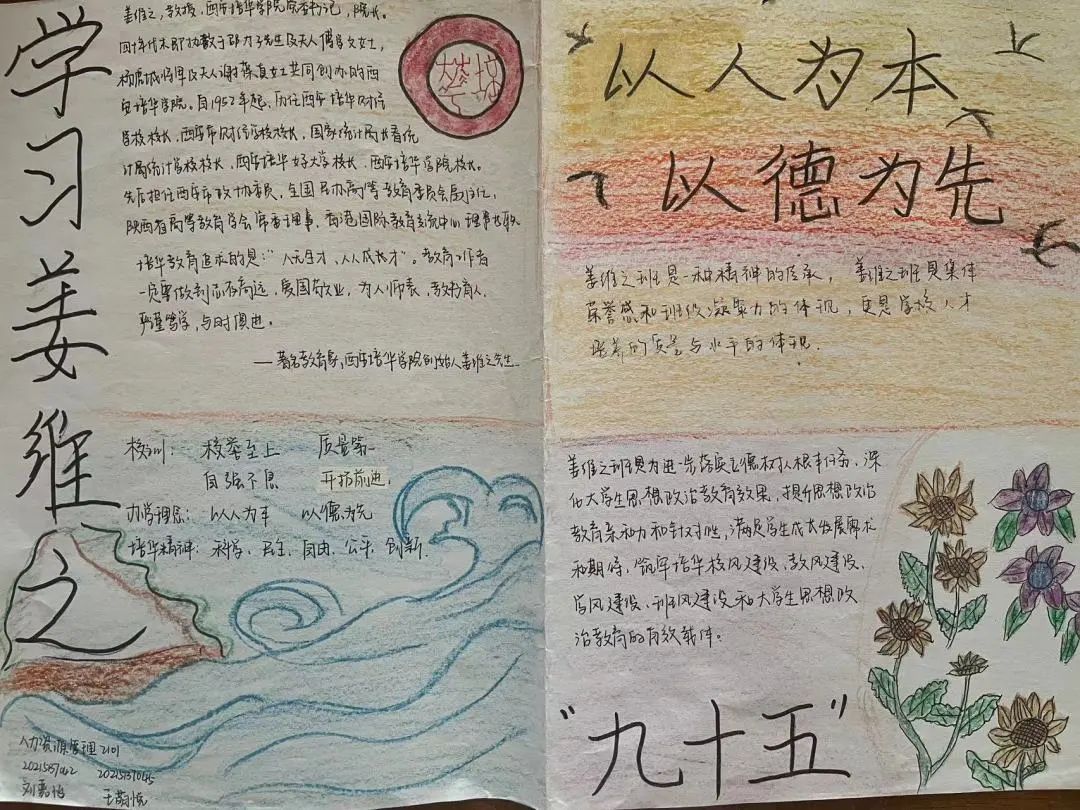 学习姜维之
姜维之,教授,西安培华学院党委书记,院长。
杨虎城将军及夫人谢葆真女士共同创办的西
安培华学院。自1952年起,历任西安培华财经
学校校长,西安市财经学校校长,国家统计局
计局统计学校校长,西安培华女子大学校长,西安培华学院校长。
先后担任西安市政协委员,全国民办高等教育委员会副主任,
陕西省高等教育学会常委理事,香港国际教育交流中心理事长职
培华教育追求的是:“人无全才,人人成才”。教育工作者
一定要做到志存高远,爱国敬业,为人师表,教书育人,
严谨笃学,与时俱进。
——著名教育家,西安培华学院创始人姜维之先生
校训: 校誉至上 质量第一
自强不息 开拓前进
办学理念: 以人为本 以德为先
培华精神: 科学、民主、自由、公平、创新
人力资源管理2101
刘嘉怡
培华
以人为本
以德为先
姜维之班是一种精神的传承, 姜维之班是集体
荣誉感和班级凝聚力的体现,更是学校人才
培养的质量与水平的体现.
姜维之班是为进一步落实立德树人根本任务,深
化大学生思想政治教育效果,提升思想政治
教育亲和力和针对性,满足学生成长发展需求
和期待,筑牢培华校风建设、教风建设、
学风建设、班风建设和大学生思想政
治教育的有效载体。
“九十五”